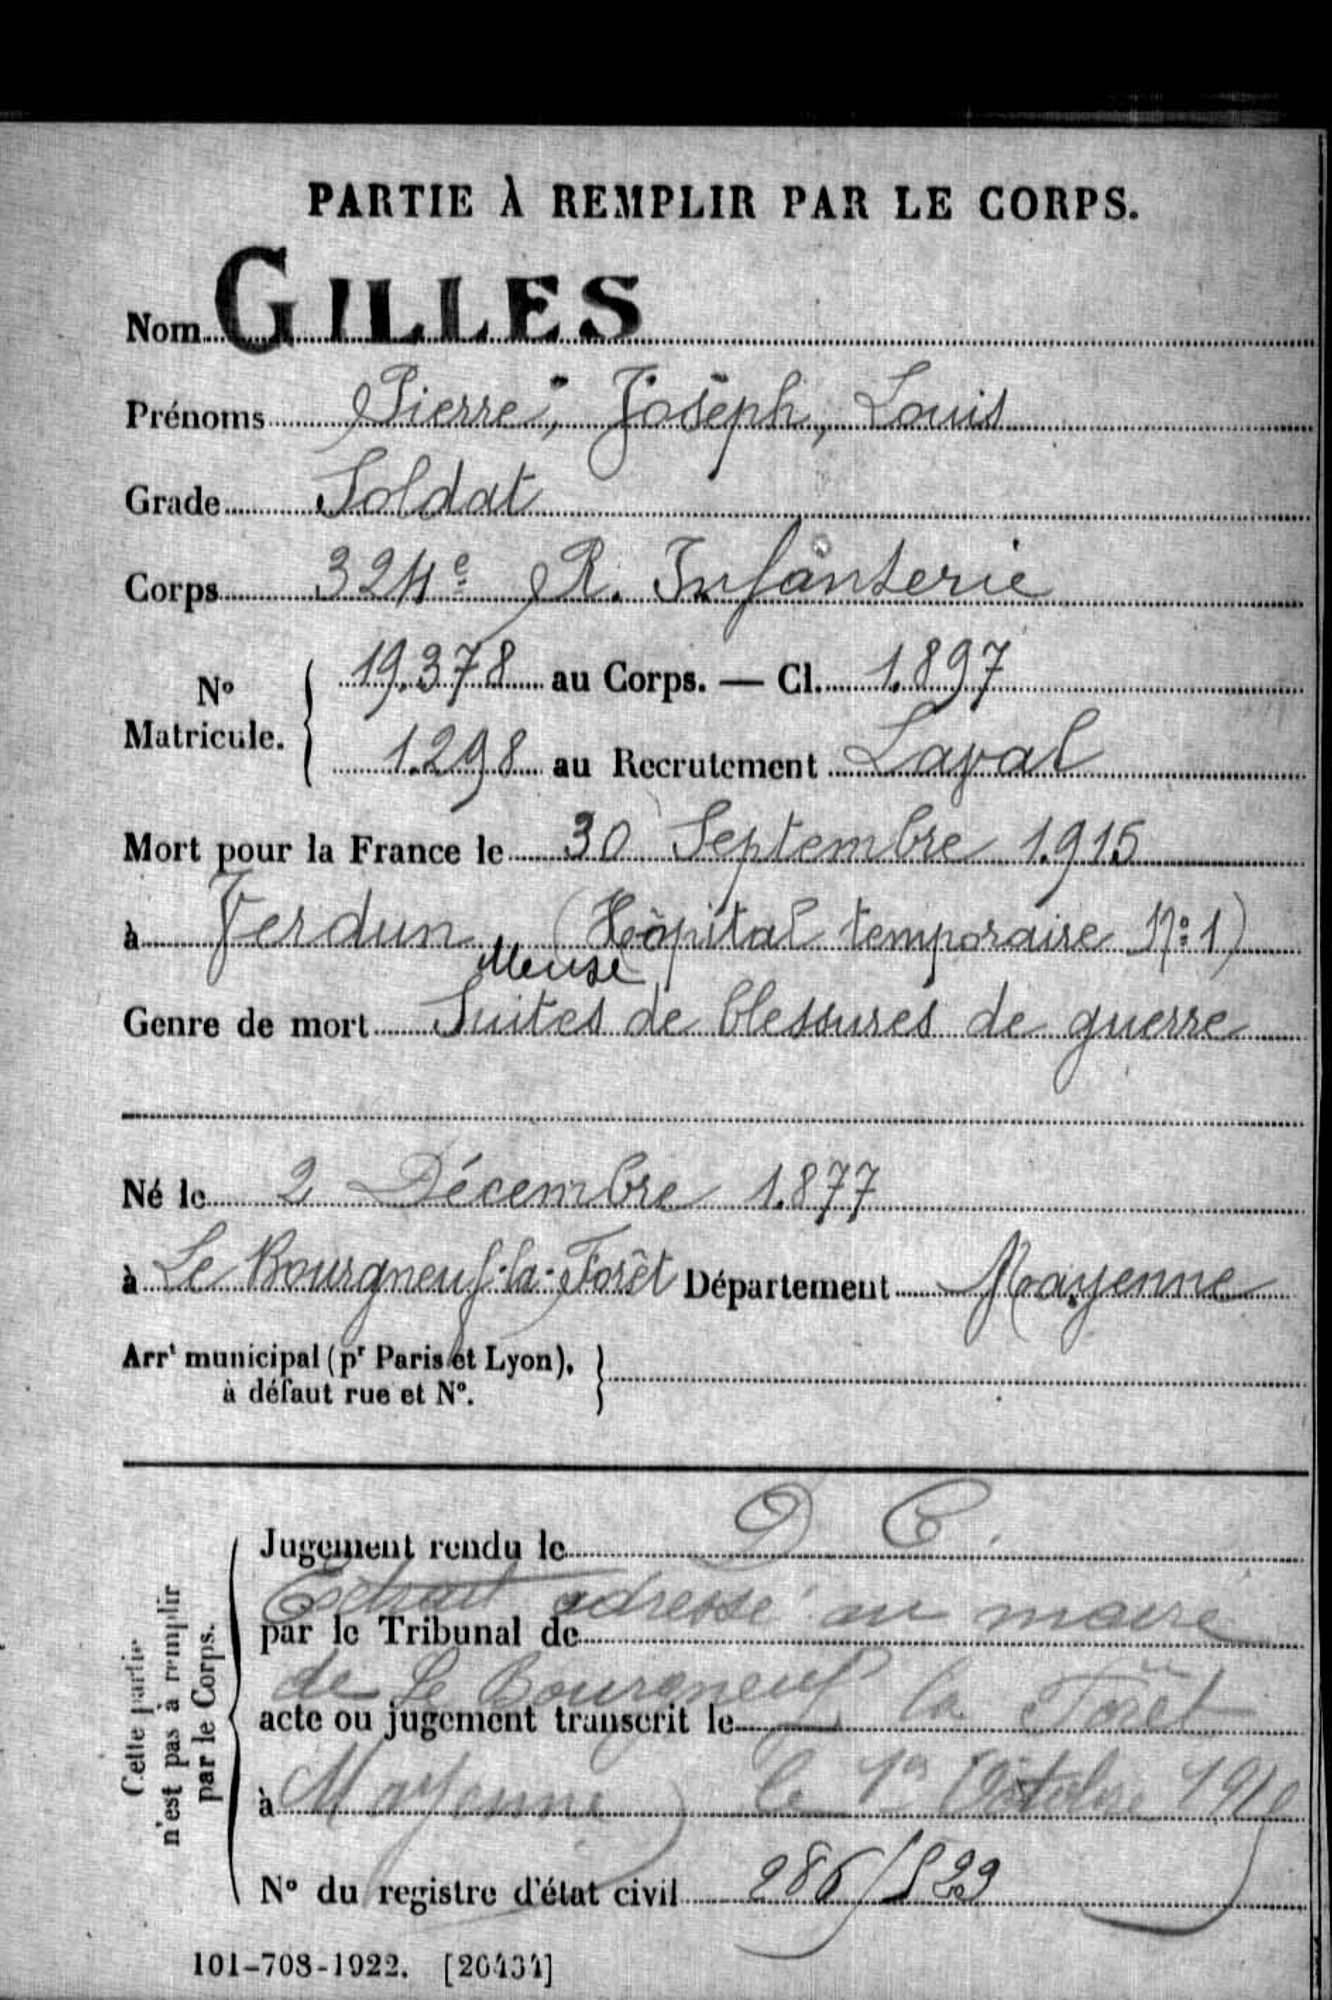 PARTIE À REMPLIR PAR LE CORPS.
Nom GILLES
Prénoms Pierre, Joseph, Louis
Grade Soldat
Corps 324e R. Infanterie
No Matricule. { 19.378 au Corps. — Cl. 1.897
1.298 au Recrutement Laval
Mort pour la France le 30 Septembre 1.915
à Verdun (Hôpital temporaire No 1)
Meuse
Genre de mort Suites de blessures de guerre
Né le 2 Décembre 1.877
à Le Bourgneuf-la-Forêt Département Mayenne
Arrt municipal (pr Paris et Lyon), }
à défaut rue et No.
Cette partie
n'est pas à remplir
par le Corps.
Jugement rendu le D C.
Extrait adressé au maire
par le Tribunal de
de Le Bourgneuf la Forêt
acte ou jugement transcrit le
à Mayenne) le 1er Octobre
No du registre d'état civil 286/
101-708-1922. [26434]